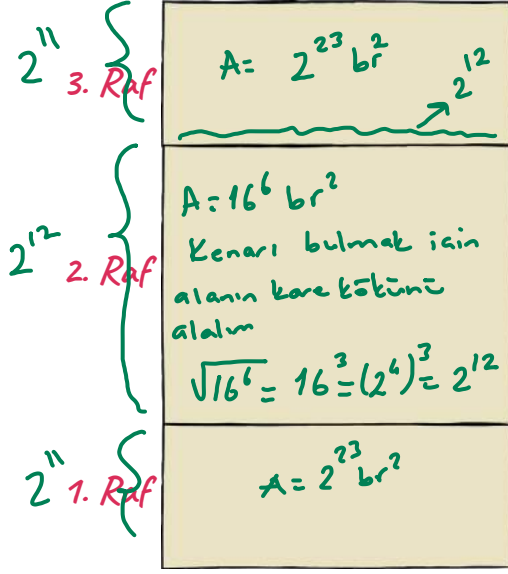 2¹¹ 3. Raf
A = 2²³ br²
2¹²
2¹² 2. Raf
A = 16⁶ br²
Kenarı bulmak için
alanın karekökünü
alalım
√16⁶ = 16³ = (2⁴)³ = 2¹²
2¹¹ 1. Raf
A = 2²³ br²